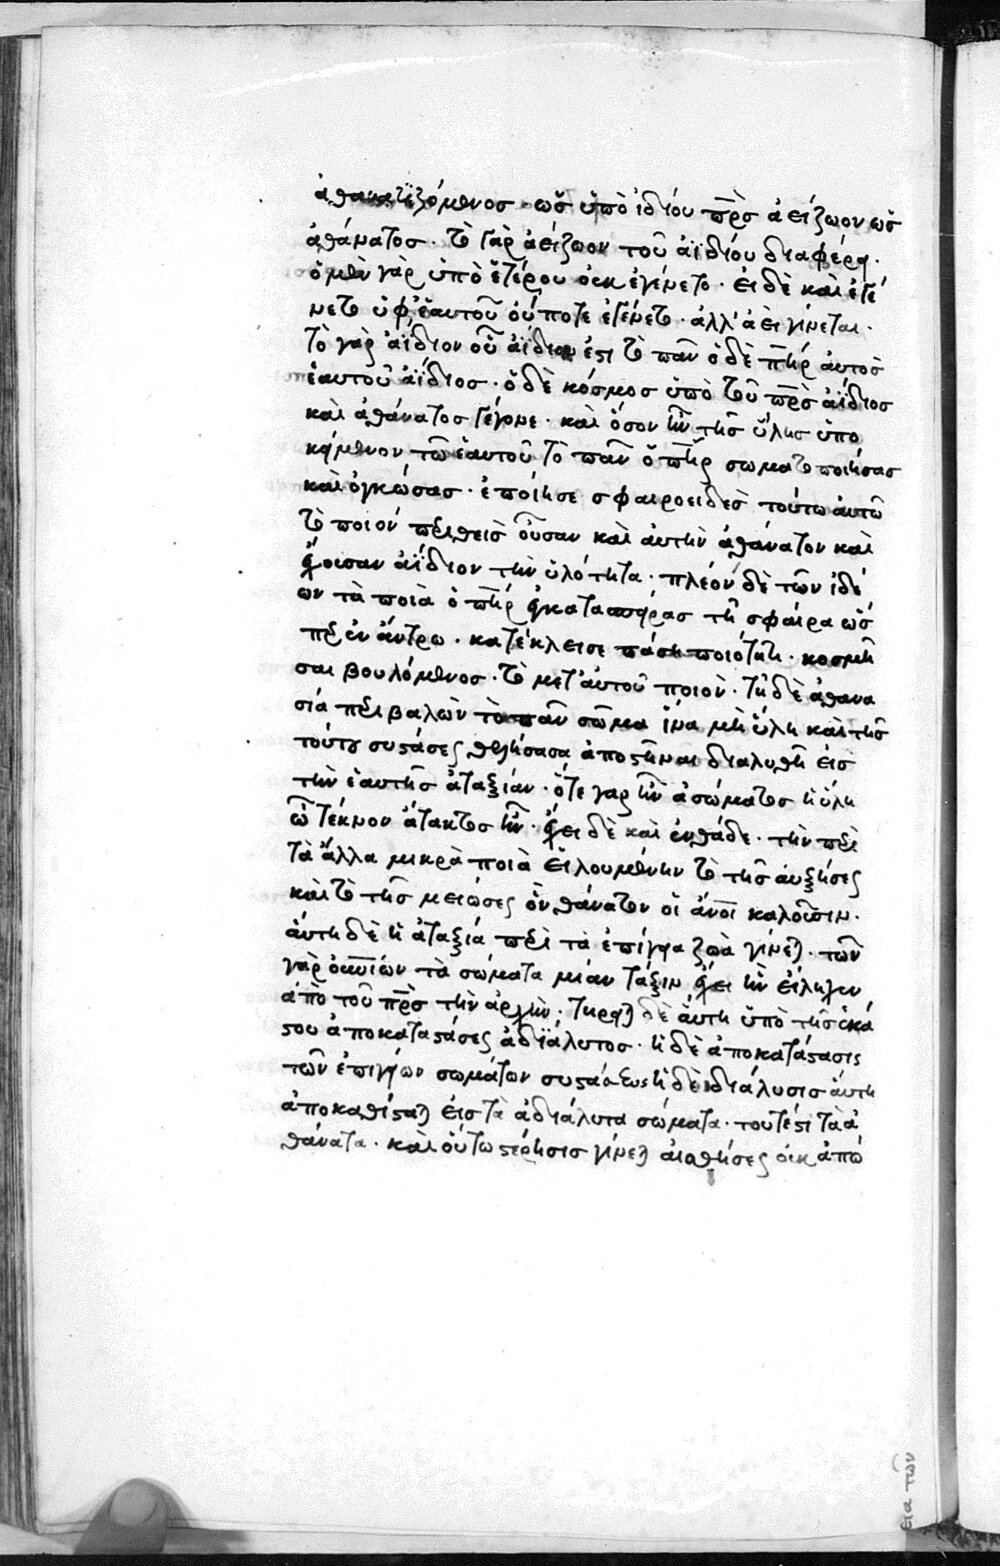 ἀθανατιζόμενος· ὡς ὑπὸ ἰδίου πρσ ἀείζωον ὡς
ἀθάνατος· τὸ γὰρ ἀείζωον τοῦ ἀϊδίου διαφέρει·
ὁ μὲν γὰρ ὑπὸ ἑτέρου οὐκ ἐγίνετο· εἰ δὲ καὶ ἐγέ
νετο ὑφ' ἑαυτοῦ οὔποτε ἐγένετο· ἀλλ' ἀεὶ γίνεται·
τὸ γὰρ ἀΐδιον οὗ ἀΐδιον ἐστι τὸ πᾶν ὁ δὲ πηρ αὐτὸς
ἑαυτοῦ ἀΐδιος· ὁ δὲ κόσμος ὑπὸ τοῦ πρσ ἀΐδιος
καὶ ἀθάνατος γέγονε· καὶ ὅσον ἦν τῆς ὕλης ὑπο
κείμενον τῶ ἑαυτοῦ τὸ πᾶν ὁ πηρ σωματοποιήσας
καὶ ὀγκώσας· ἐποίησε σφαιροειδὲς τούτω αὐτῶ
τὸ ποιὸν περιθεὶς οὖσαν καὶ αὐτὴν ἀθάνατον καὶ
ἔχουσαν ἀΐδιον τὴν ὑλότητα· πλέον δὲ τῶν ἰδε
ων τὰ ποιὰ ὁ πηρ ἐγκατασπείρας τῆ σφαίρα ὥσ
περ ἐν ἄντρω· κατέκλεισε πάση ποιότητι· κοσμῆ
σαι βουλόμενος· τὸ μετ' αὐτοῦ ποιὸν· τῆ δὲ ἀθανα
σία περιβαλὼν τὸ πᾶν σῶμα ἵνα μὴ ὕλη καὶ τῆς
τούτου συστάσεως θελήσασα ἀποστῆναι διαλυθῆ εἰς
τὴν ἑαυτῆς ἀταξίαν· ὅτε γαρ ἦν ἀσώματος ἡ ὕλη
ὦ τέκνον ἄτακτος ἦν· ἔχει δὲ καὶ ἐνθάδε· τὴν περὶ
τὰ ἄλλα μικρὰ ποιὰ εἱλουμένην τὸ τῆς αὐξήσεως
καὶ τὸ τῆς μειώσεως ὃν θάνατον οἱ ἄνοι καλοῦσιν·
αὕτη δὲ ἡ ἀταξία περὶ τὰ ἐπίγεια ζῶα γίνεται· τῶν
γὰρ οὐνίων τὰ σώματα μίαν τάξιν ἔχει ἣν εἴληχεν
ἀπὸ τοῦ πρσ τὴν ἀρχὴν· τηρεῖται δὲ αὕτη ὑπὸ τῆς ἑκά
στου ἀποκαταστάσεως ἀδιάλυτος· ἡ δὲ ἀποκατάστασις
τῶν ἐπιγείων σωμάτων συστάσεως ἡ δὲ διάλυσις αὕτη
ἀποκαθίσταται εἰς τὰ ἀδιάλυτα σώματα· τουτέστι τὰ ἀ
θάνατα· καὶ οὕτω στέρησις γίνεται αἰσθήσεως οὐκ ἀπώ
εια τῶν